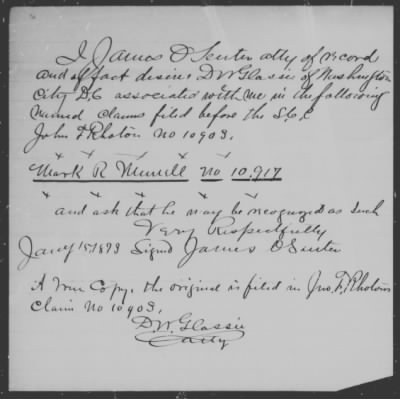 I James O Senter atty of record
and of fact desire D W Glassie of Washington
City D,C associated with me in the following
named claims filed before the S.C.C
John F Rhoton No 10903.
Mark R Murrell No 10,917
and ask that he may be recognized as such
Very Respectfully
Jany 15 1873 Signd James O Senter
A True Copy, the original is filed in Jno. F, Rhotons
Claim No 10903,
D. W. Glassie
atty